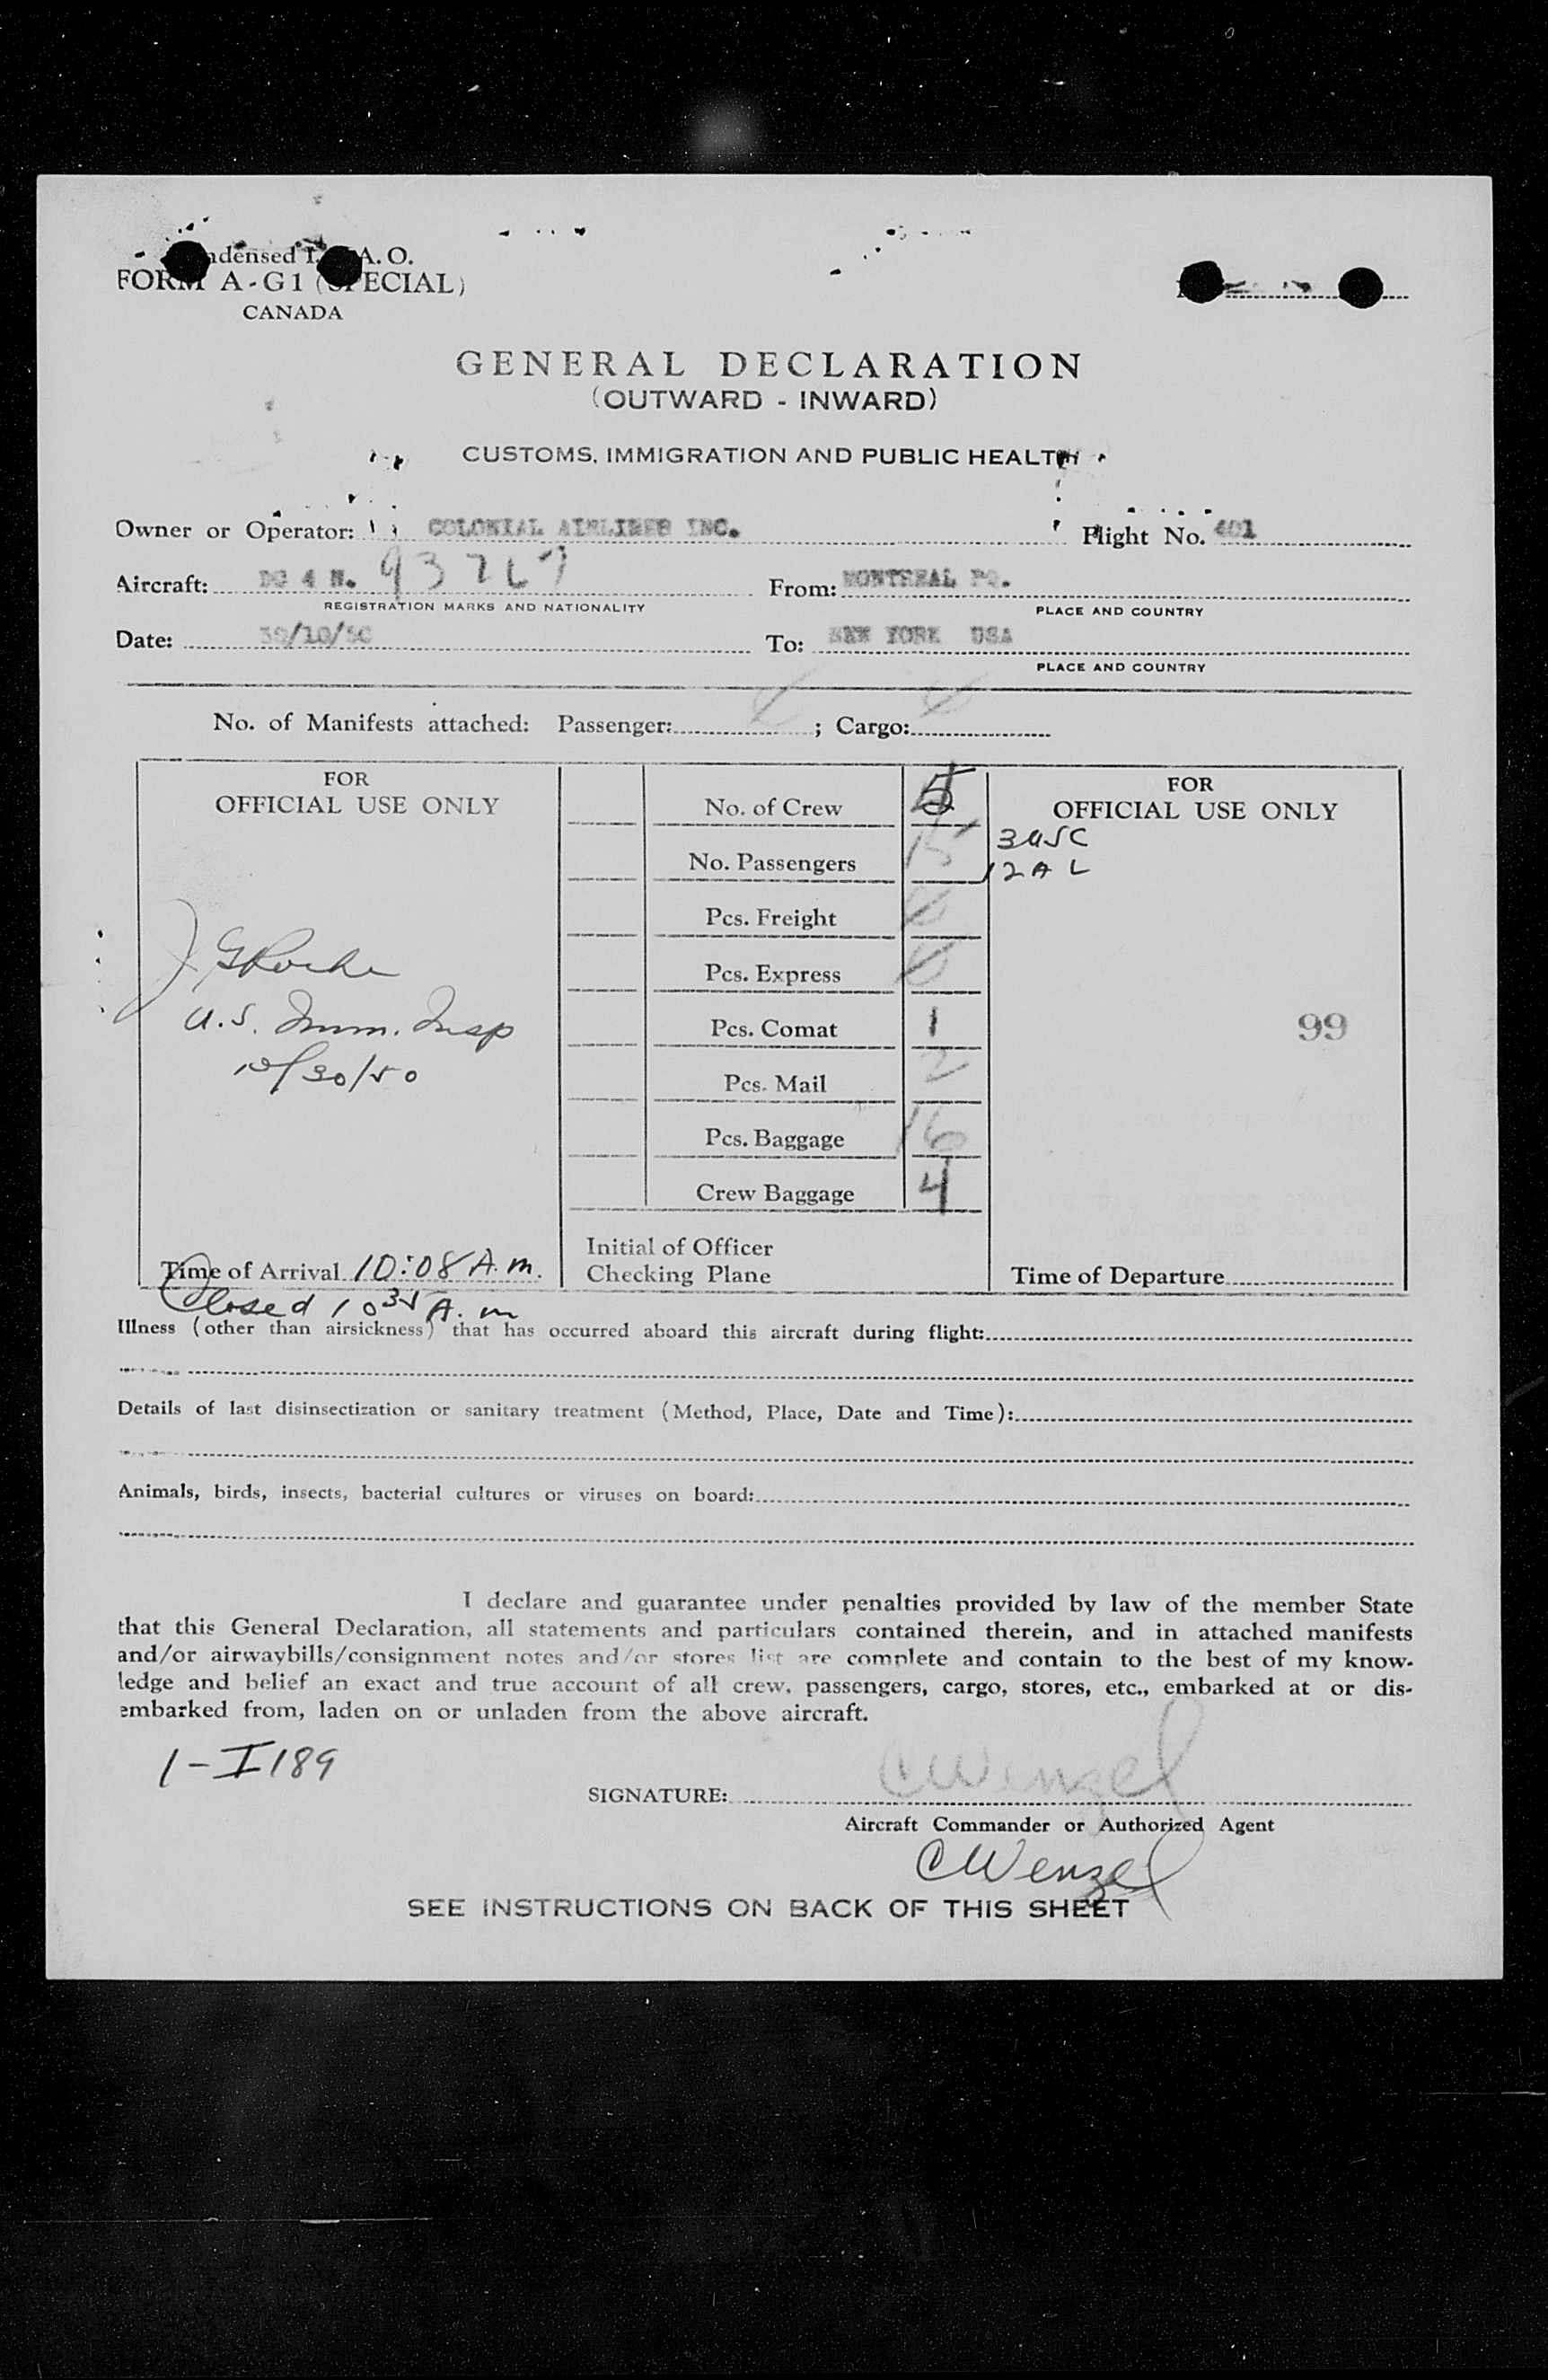 FORM A-G1 (SPECIAL)
CANADA
GENERAL DECLARATION
(OUTWARD - INWARD)
CUSTOMS, IMMIGRATION AND PUBLIC HEALTH
Owner or Operator: COLONIAL AIRLINES INC. Flight No. 401
Aircraft: DC 4 N. From: MONTREAL PQ.
REGISTRATION MARKS AND NATIONALITY PLACE AND COUNTRY
Date: 30/10/50 To: NEW YORK USA
PLACE AND COUNTRY
No. of Manifests attached: Passenger: ; Cargo:
FOR
OFFICIAL USE ONLY
No. of Crew 5
FOR
OFFICIAL USE ONLY
No. Passengers 15
3 USC
12 AL
Pcs. Freight
Pcs. Express
Pcs. Comat 1
U.S. Imm. Insp
99
10/30/50
Pcs. Mail 2
Pcs. Baggage 16
Crew Baggage 4
Initial of Officer
Checking Plane
Time of Arrival 10:08 A.m.
Time of Departure
Closed 10 35 A.m
Illness (other than airsickness) that has occurred aboard this aircraft during flight:
Details of last disinsectization or sanitary treatment (Method, Place, Date and Time):
Animals, birds, insects, bacterial cultures or viruses on board:
I declare and guarantee under penalties provided by law of the member State
that this General Declaration, all statements and particulars contained therein, and in attached manifests
and/or airwaybills/consignment notes and/or stores list are complete and contain to the best of my know-
ledge and belief an exact and true account of all crew, passengers, cargo, stores, etc., embarked at or dis-
embarked from, laden on or unladen from the above aircraft.
1-I189
SIGNATURE: CWenzel
Aircraft Commander or Authorized Agent
CWenzel
SEE INSTRUCTIONS ON BACK OF THIS SHEET